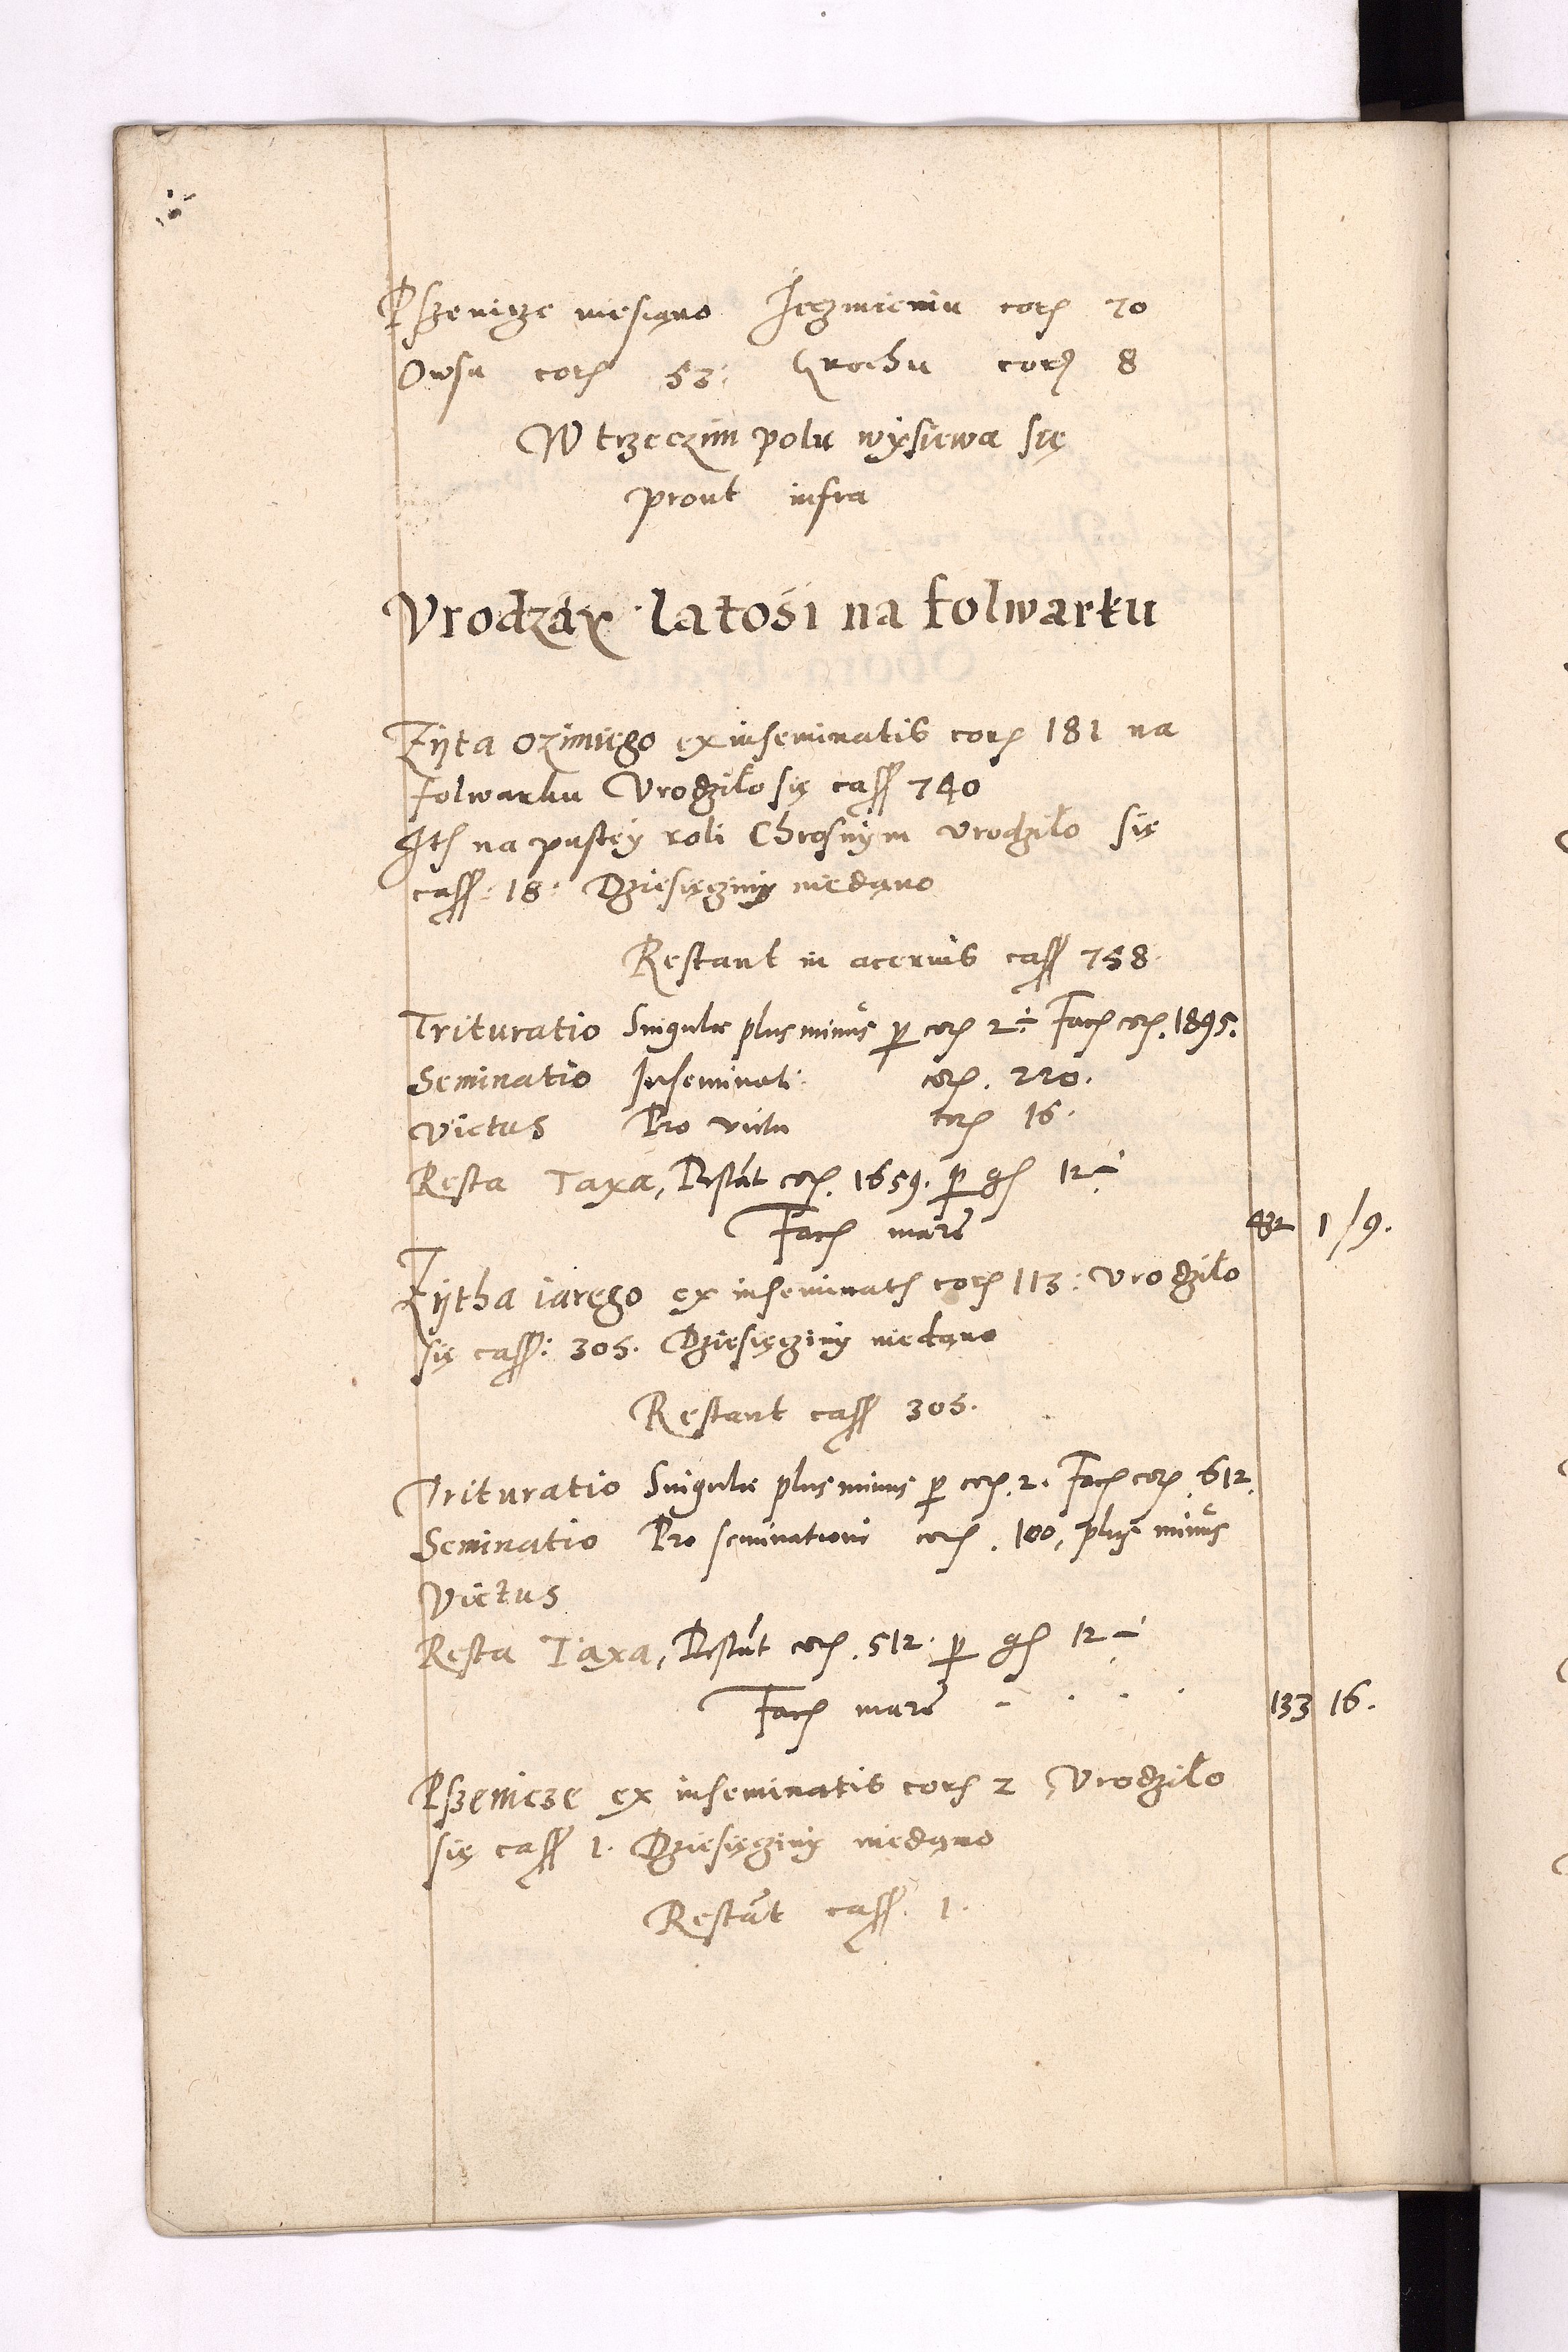 Pszenicze niesiąno Jęczmieniu cor 20
Owsu cor 53: Grochu cor 8
W trzeczim polu wysiewa się
prout infra
Vrodzay latosi na folwarku
Zyta ozimiego ex inseminatis cor 181 na
folwarku Vrodziło się cass 740
It na pustey roli Chrosnym vrodziło się
cass: 18: Dziesięcziny niedąno
Restant in acervis cass 758.
Trituratio Singulæ plus minus p cor 2 ÷ Fac cor. 1895.
Seminatio Inseminati: cor. 220.
Victus Pro victu cor 16.
Resta Taxa, Restant cor. 1659. p g 12 ÷
Fac marc 432 1/9.
Zytha iarego ex inseminat cor 113: vrodziło
się cass: 305. Dziesięcziny niedąno
Restant cass 305.
Trituratio Singulæ plus minus p cor. 2. Fac cor. 612.
Seminatio Pro seminatione cor. 100, plus minus
Victus
Resta Taxa, Restant cor. 512. p g 12 ÷
Fac marc - . . . 133 16.
Pszenicze ex inseminatis cor 2 Vrodziło
się cass 1. Dziesięcziny niedąno
Restat cass. 1.